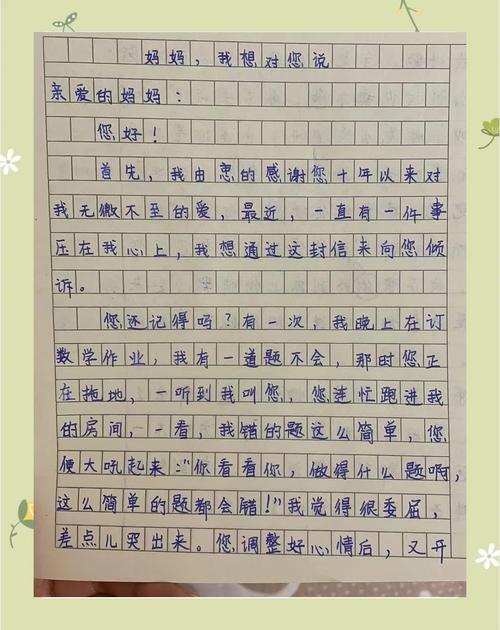 妈妈，我想对您说
亲爱的妈妈：
您好！
首先，我由衷的感谢您十年以来对
我无微不至的爱，最近，一直有一件事
压在我心上，我想通过这封信来向您倾
诉。
您还记得吗？有一次，我晚上在订
数学作业，我有一道题不会，那时您正
在拖地，一听到我叫您，您连忙跑进我
的房间，一看，我错的题这么简单，您
便大吼起来：“你看看你，做得什么题啊，
这么简单的题都会错！”我觉得很委屈，
差点儿哭出来。您调整好心情后，又开